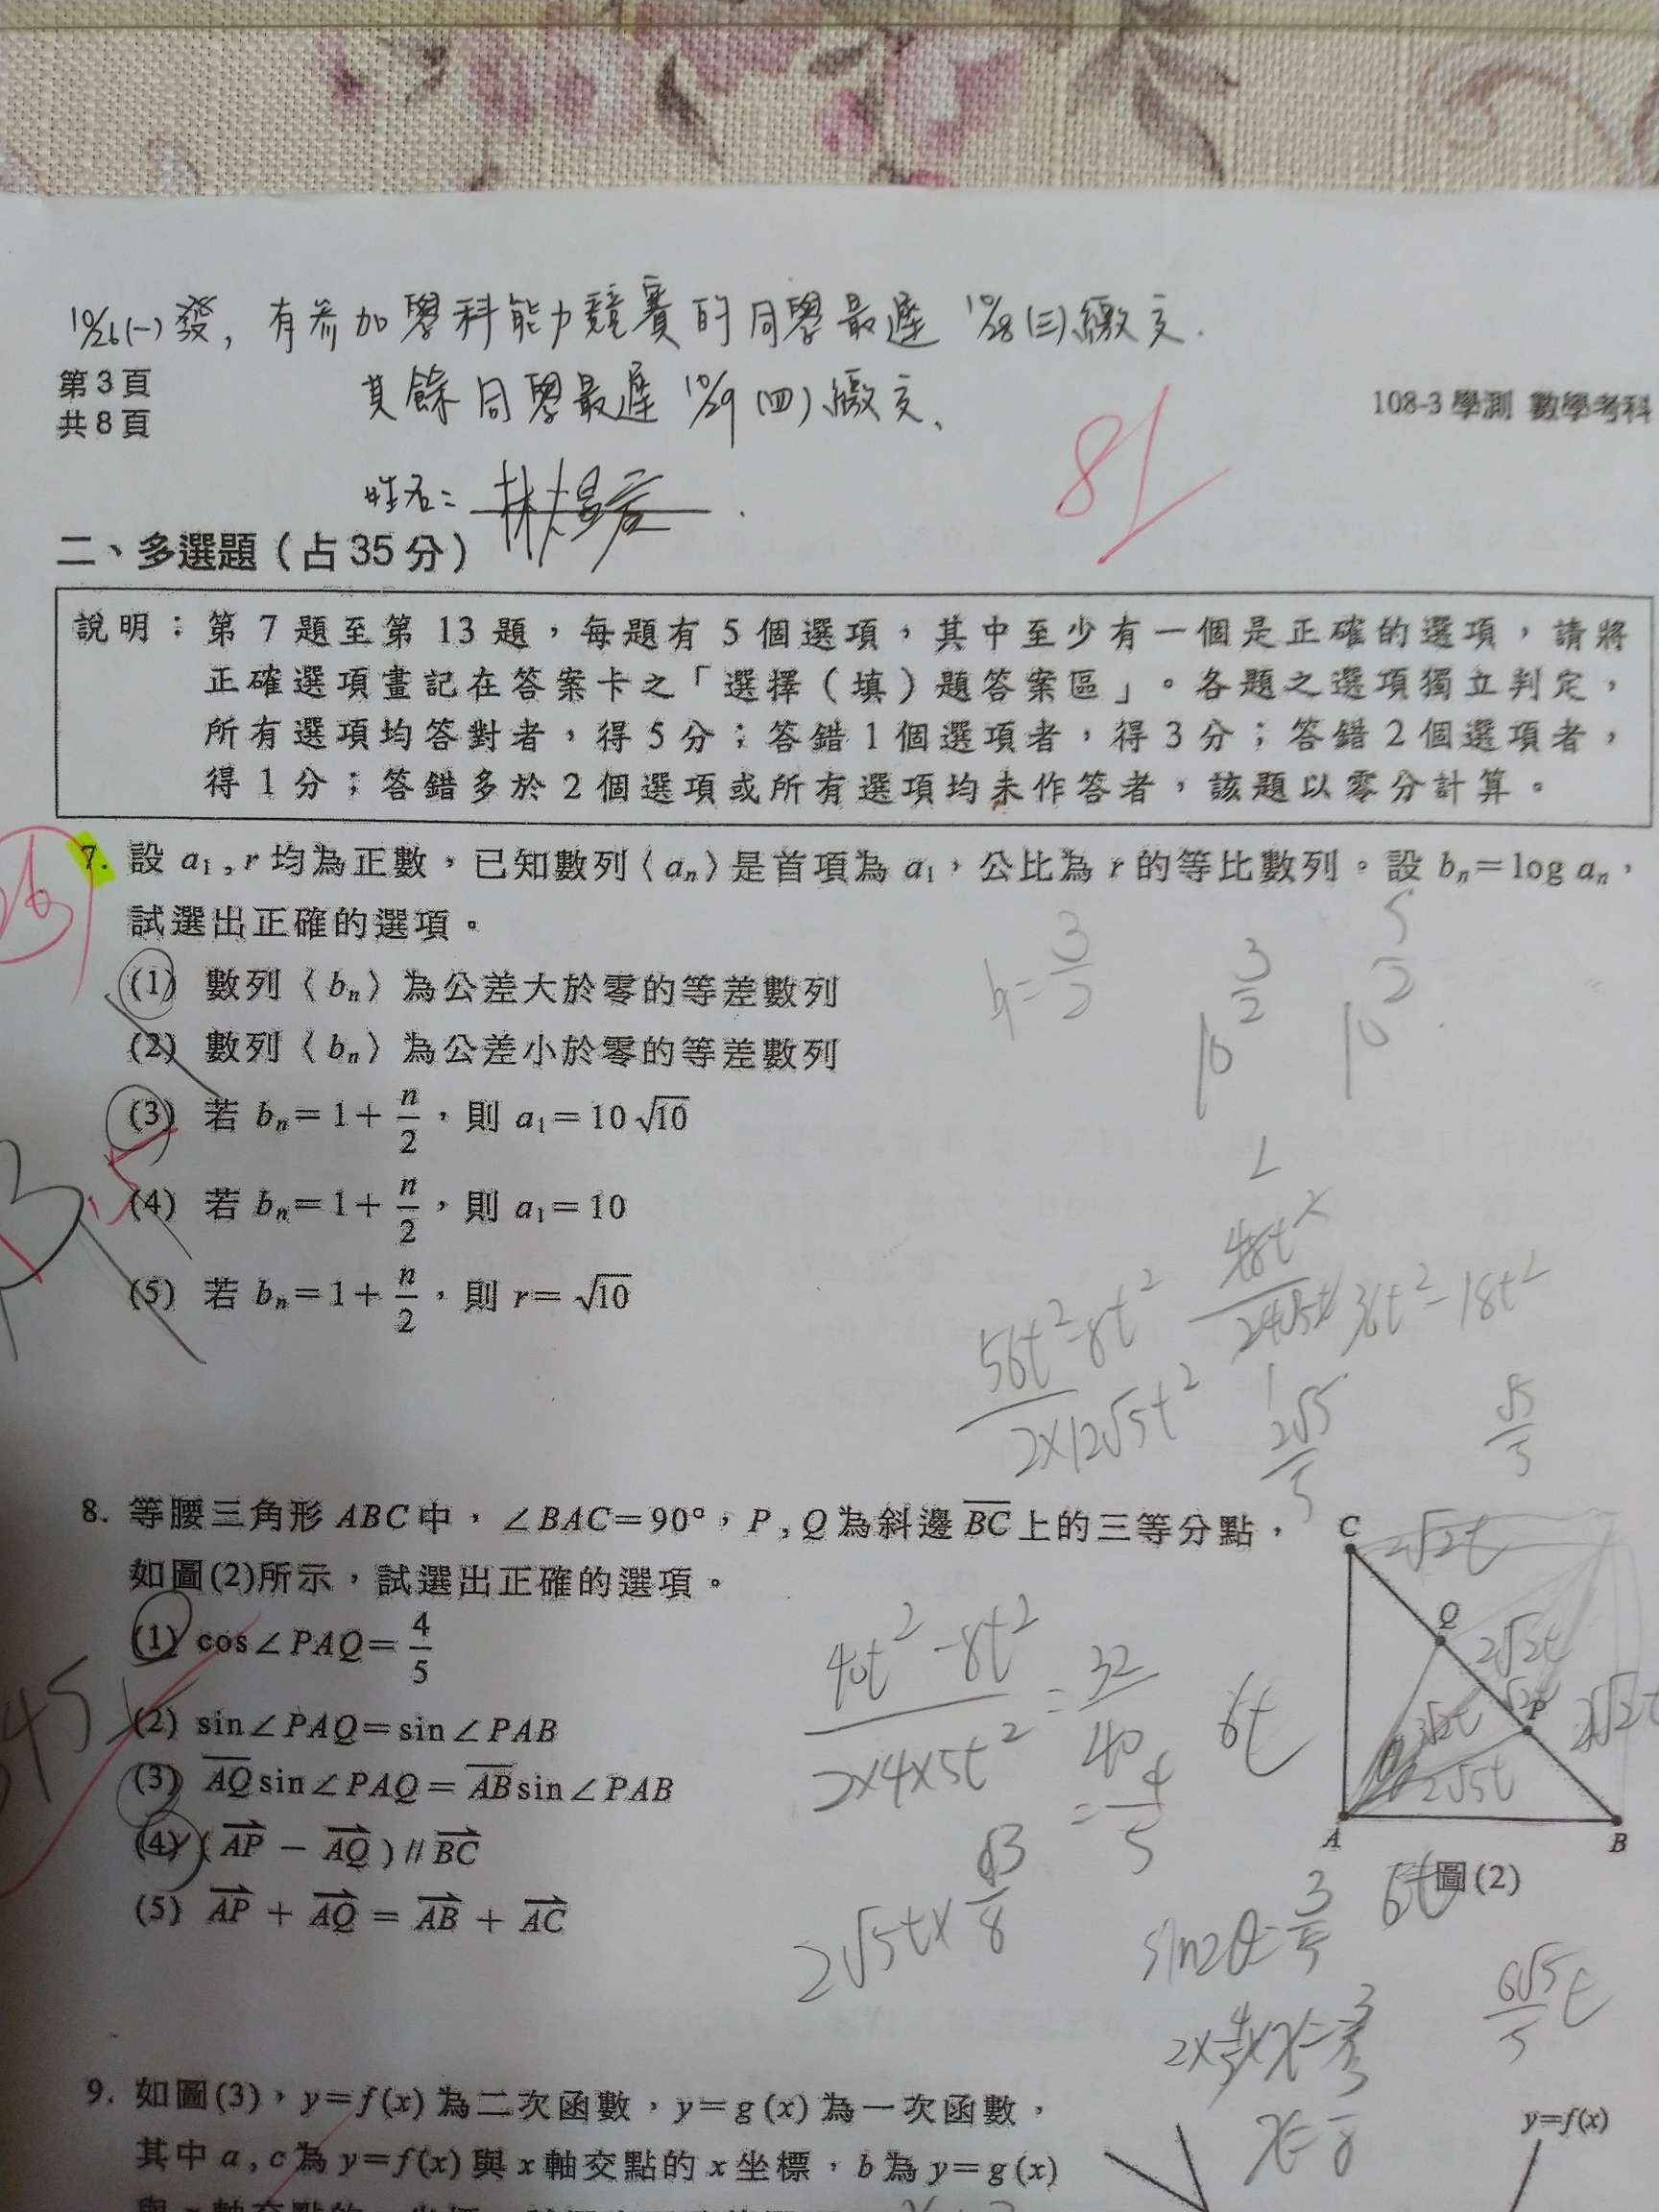 10/26(一)發，有參加學科能力競賽的同學最遲 10/28(三)繳交.
第3頁
共8頁
其餘同學最遲 10/29 (四)繳交、
108-3 學測 數學考科
81
姓名：
二、多選題（占 35 分）
說明：第 7 題至第 13 題，每題有 5 個選項，其中至少有一個是正確的選項，請將
正確選項畫記在答案卡之「選擇（填）題答案區」。各題之選項獨立判定，
所有選項均答對者，得 5 分；答錯 1 個選項者，得 3 分；答錯 2 個選項者，
得 1 分；答錯多於 2 個選項或所有選項均未作答者，該題以零分計算。
7. 設 a₁, r 均為正數，已知數列〈aₙ〉是首項為 a₁，公比為 r 的等比數列。設 bₙ=log aₙ，
試選出正確的選項。
(1) 數列〈bₙ〉為公差大於零的等差數列
(2) 數列〈bₙ〉為公差小於零的等差數列
(3) 若 bₙ=1+n/2，則 a₁=10√10
(4) 若 bₙ=1+n/2，則 a₁=10
(5) 若 bₙ=1+n/2，則 r=√10
56t²-8t² / 2×12√5t²
36t²-18t²
2√5/5
√5/5
8. 等腰三角形 ABC 中，∠BAC=90°，P, Q 為斜邊 BC 上的三等分點，
如圖(2)所示，試選出正確的選項。
(1) cos∠PAQ=4/5
(2) sin∠PAQ=sin∠PAB
(3) AQ sin∠PAQ=AB sin∠PAB
(4) (AP − AQ) // BC
(5) AP + AQ = AB + AC
40t²-8t² / 2×4×5t² = 32/40 = 4/5
6t
C
2√2t
Q
2√2t
P
2√5t
A
B
圖(2)
6t
sin2θ=3/5
6√5/5 t
9. 如圖(3)，y=f(x) 為二次函數，y=g(x) 為一次函數，
y=f(x)
其中 a, c 為 y=f(x) 與 x 軸交點的 x 坐標，b 為 y=g(x)